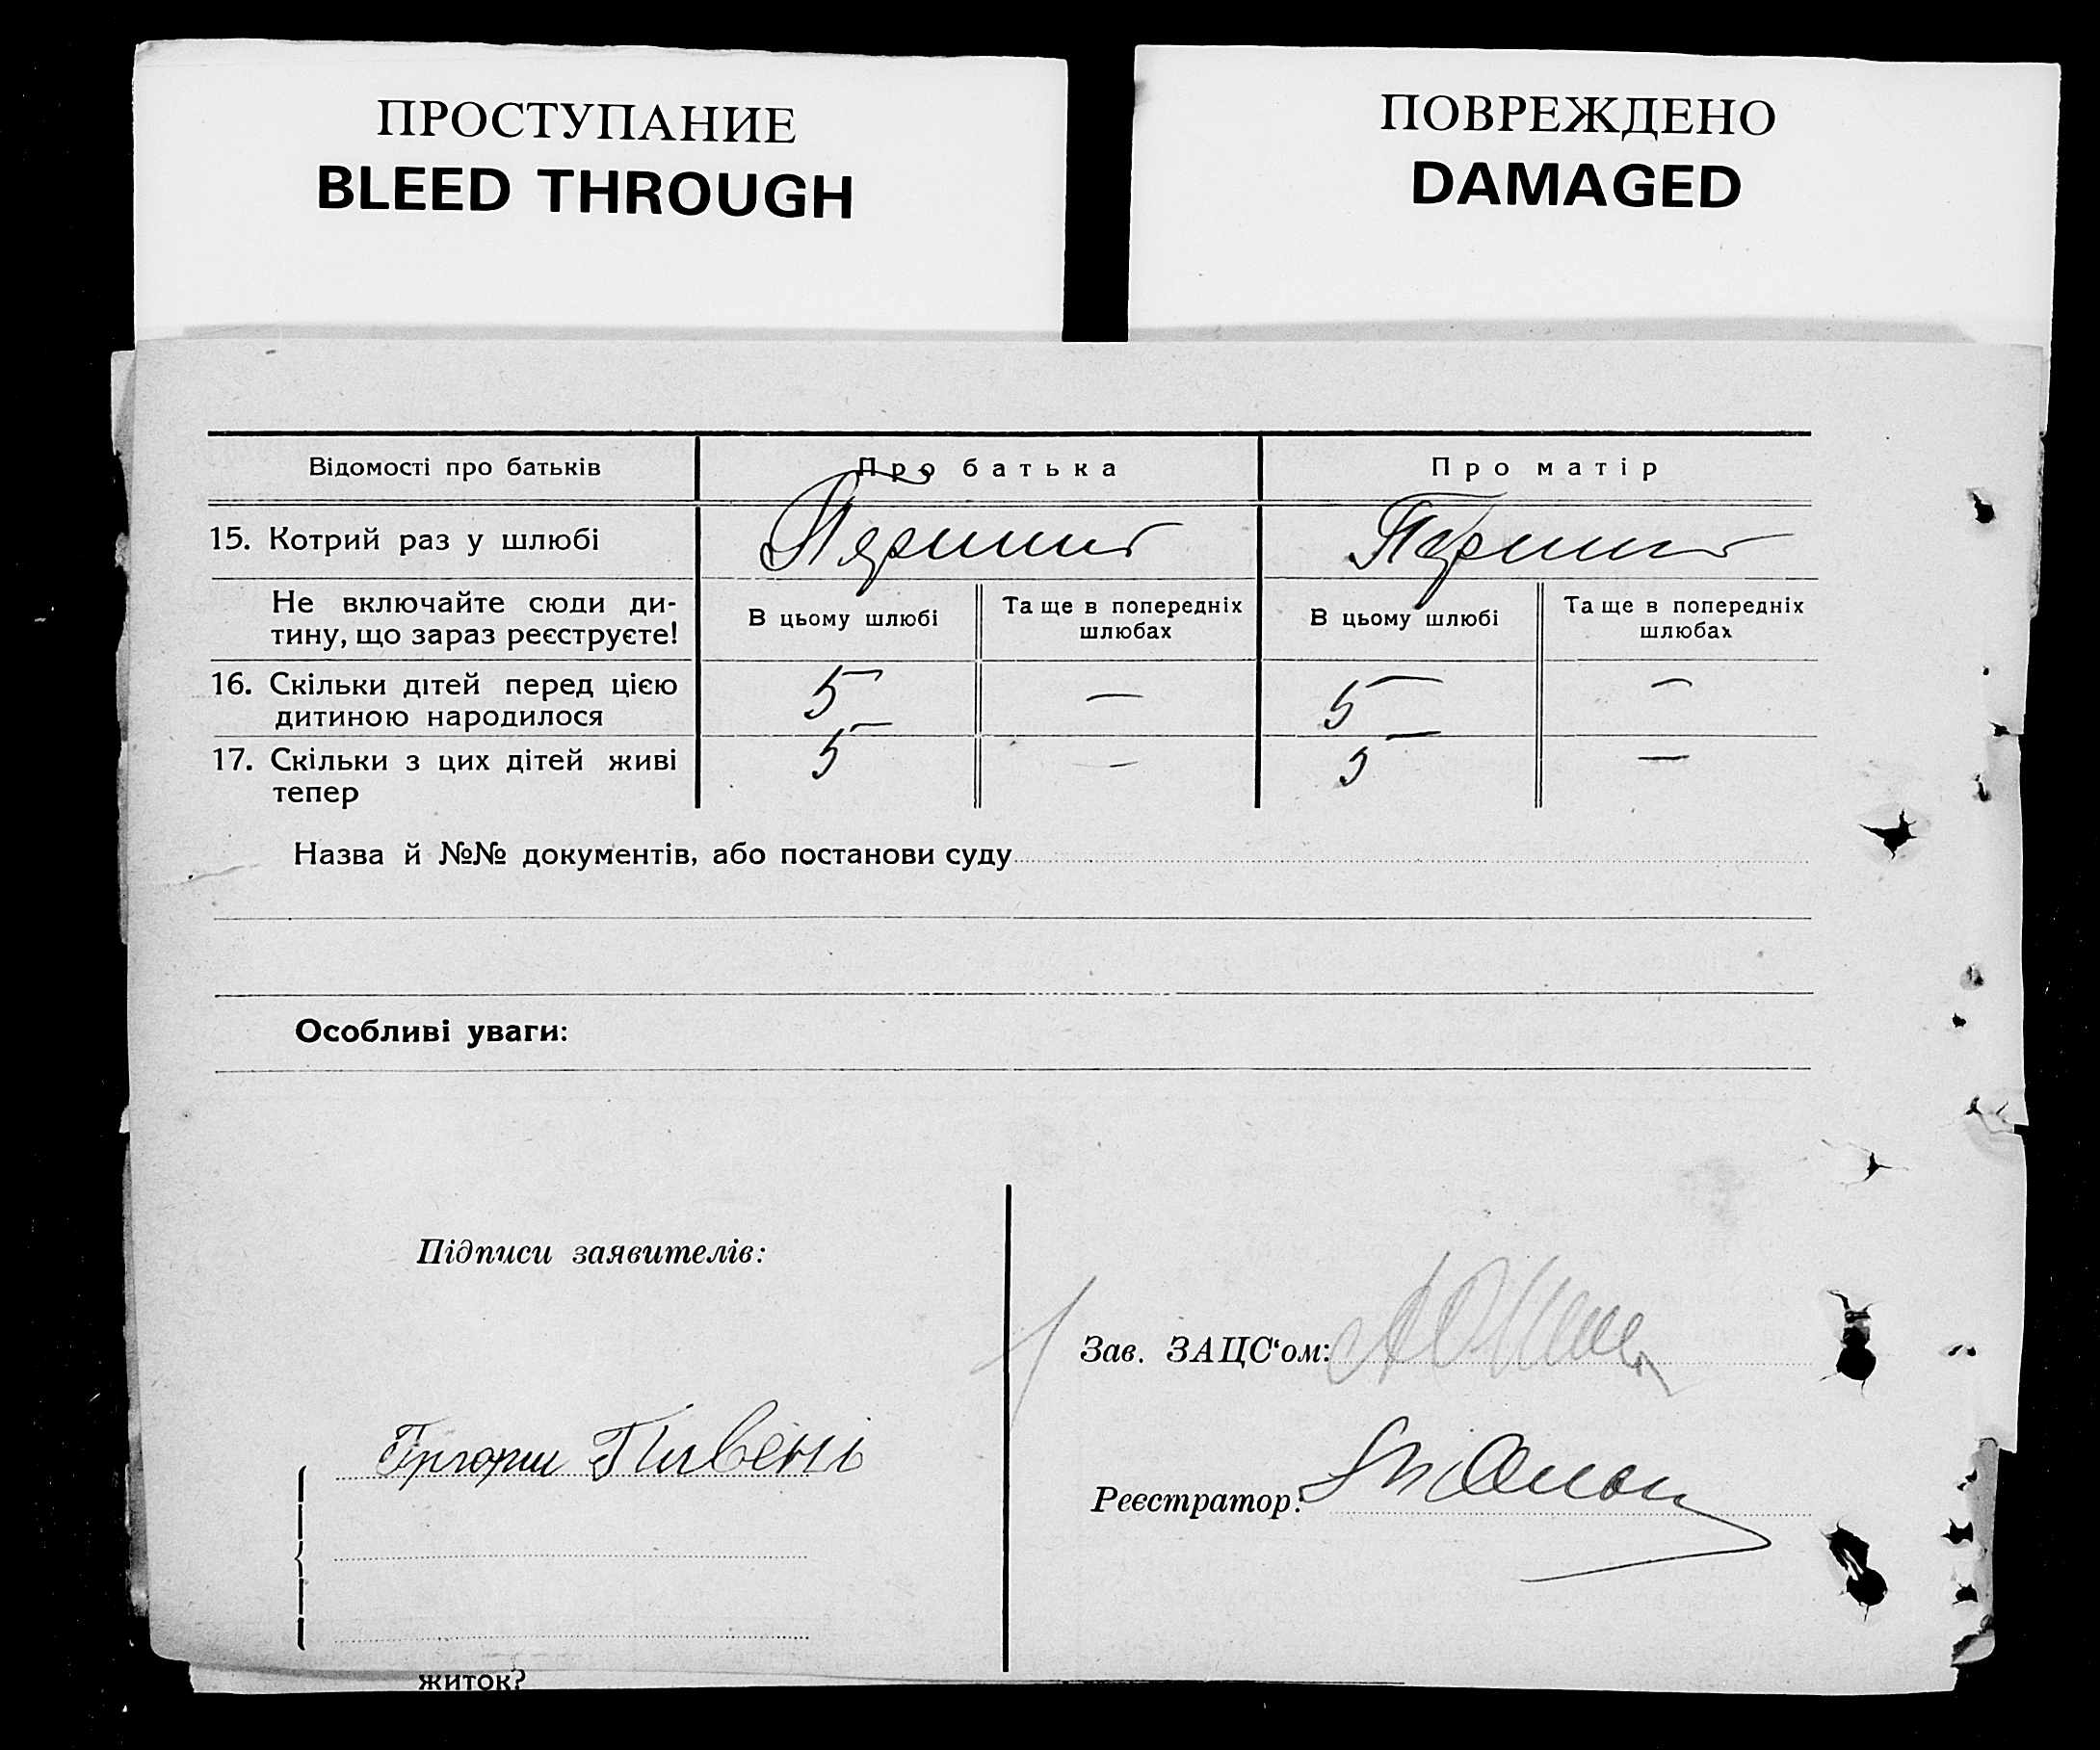 ПРОСТУПАНИЕ
BLEED THROUGH
ПОВРЕЖДЕНО
DAMAGED
Відомості про батьків Про батька Про матір
15. Котрий раз у шлюбі Перший Перший
Не включайте сюди ди-
тину, що зараз реєструєте!
В цьому шлюбі
Та ще в попередніх
шлюбах
В цьому шлюбі
Та ще в попередніх
шлюбах
16. Скільки дітей перед цією
дитиною народилося
5 — 5 —
17. Скільки з цих дітей живі
тепер
5 — 5 —
Назва й №№ документів, або постанови суду
Особливі уваги:
Підписи заявителів:
Зав. ЗАЦС‘ом:
Грғори Пивень
Реєстратор:
житок?